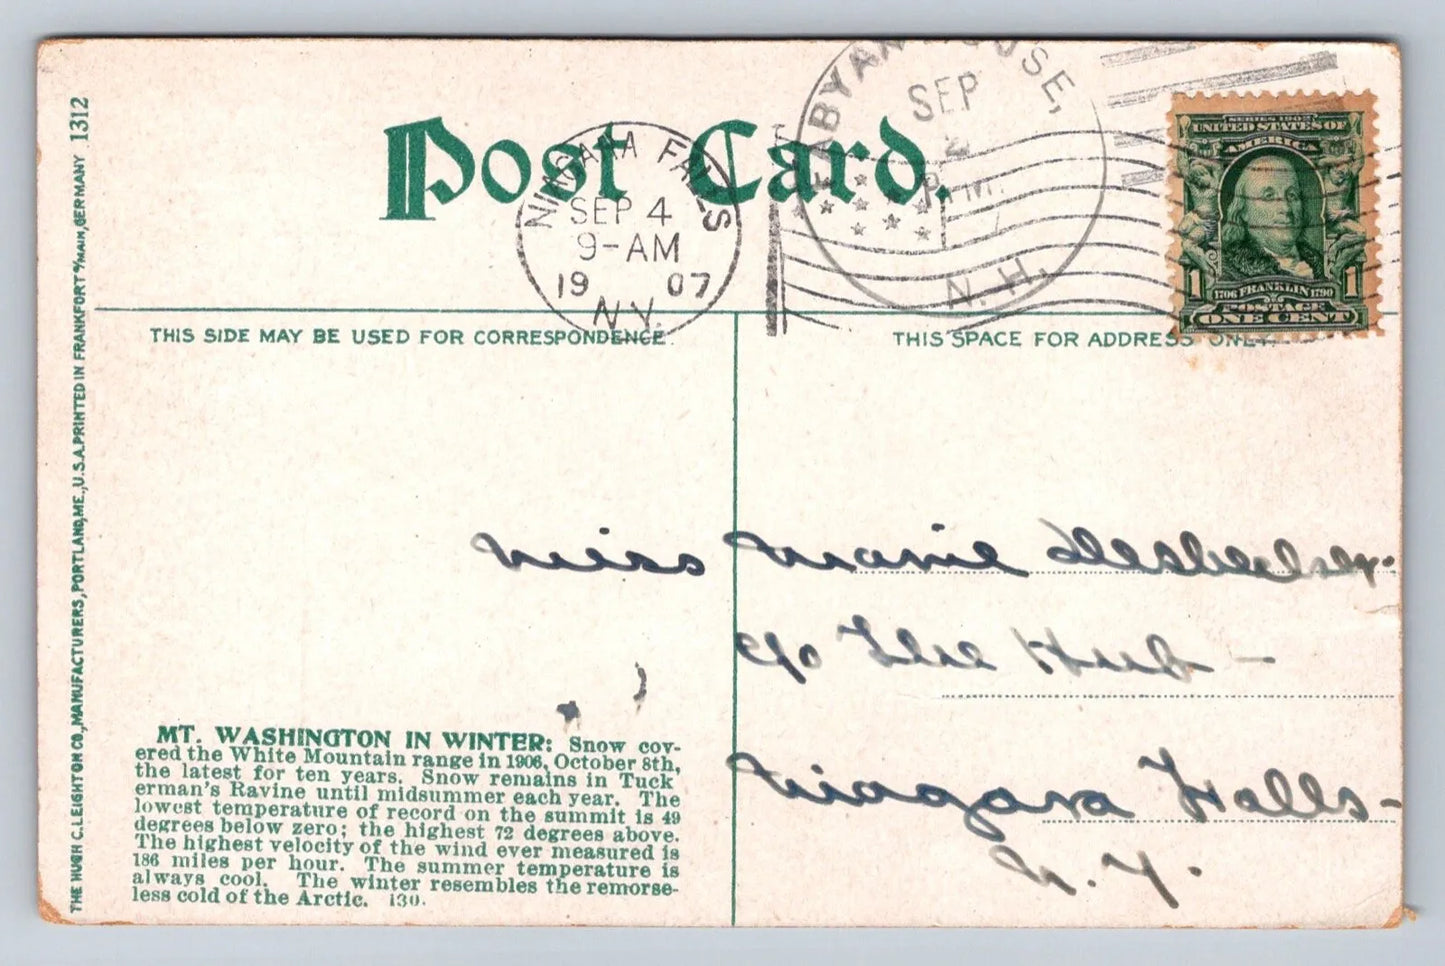 Post Card.
FABYAN HOUSE,
SEP
2
P.M.
N.H.
NIAGARA FALLS
SEP 4
9-AM
19 07
N.Y.
SERIES 1902
UNITED STATES OF
AMERICA
1706 FRANKLIN 1790
1 1
POSTAGE
ONE CENT
THIS SIDE MAY BE USED FOR CORRESPONDENCE.
THIS SPACE FOR ADDRESS ONLY.
Miss Mamie
c/o The Hub –
Niagara Falls –
N. Y.
MT. WASHINGTON IN WINTER: Snow cov-
ered the White Mountain range in 1906, October 8th,
the latest for ten years. Snow remains in Tuck
erman's Ravine until midsummer each year. The
lowest temperature of record on the summit is 49
degrees below zero; the highest 72 degrees above.
The highest velocity of the wind ever measured is
186 miles per hour. The summer temperature is
always cool. The winter resembles the remorse-
less cold of the Arctic. 130.
THE HUGH C. LEIGHTON CO., MANUFACTURERS, PORTLAND, ME., U.S.A. PRINTED IN FRANKFORT o/MAIN, GERMANY 1312